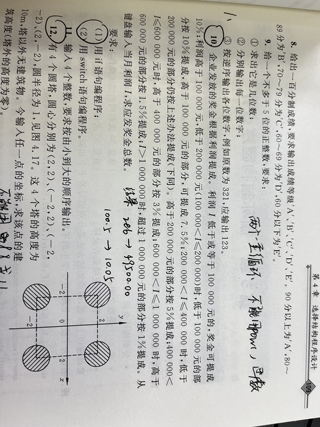 第4章 选择结构程序设计
8. 给出一百分制成绩,要求输出成绩等级'A'、'B'、'C'、'D'、'E'。90分以上为'A',80~
89分为'B',70~79分为'C',60~69分为'D',60分以下为'E'。
9. 给一个不多于5位的正整数,要求:
① 求出它是几位数;
② 分别输出每一位数字;
③ 按逆序输出各位数字,例如原数为321,应输出123。
10. 企业发放的奖金根据利润提成。利润I低于或等于100000元的,奖金可提成
10%;利润高于100000元,低于200000元(100000<I≤200000)时,低于100000元的部
分按10%提成,高于100000元的部分,可提成7.5%;200000<I≤400000时,低于
200000元的部分仍按上述办法提成(下同)。高于200000元的部分按5%提成;400000<
I≤600000元时,高于400000元的部分按3%提成;600000<I≤1000000时,高于
600000元的部分按1.5%提成;I>1000000时,超过1000000元的部分按1%提成。从
键盘输入当月利润I,求应发奖金总数。
要求:
(1) 用if语句编程序;
(2) 用switch语句编程序。
11. 输入4个整数,要求按由小到大的顺序输出。
12. 有4个圆塔,圆心分别为(2,2)、(-2,2)、(-2,
-2)、(2,-2),圆半径为1,见图4.17。这4个塔的高度为
10m,塔以外无建筑物。今输入任一点的坐标,求该点的建
筑高度(塔外的高度为零)。
y
2
-2
0
2
x
-2